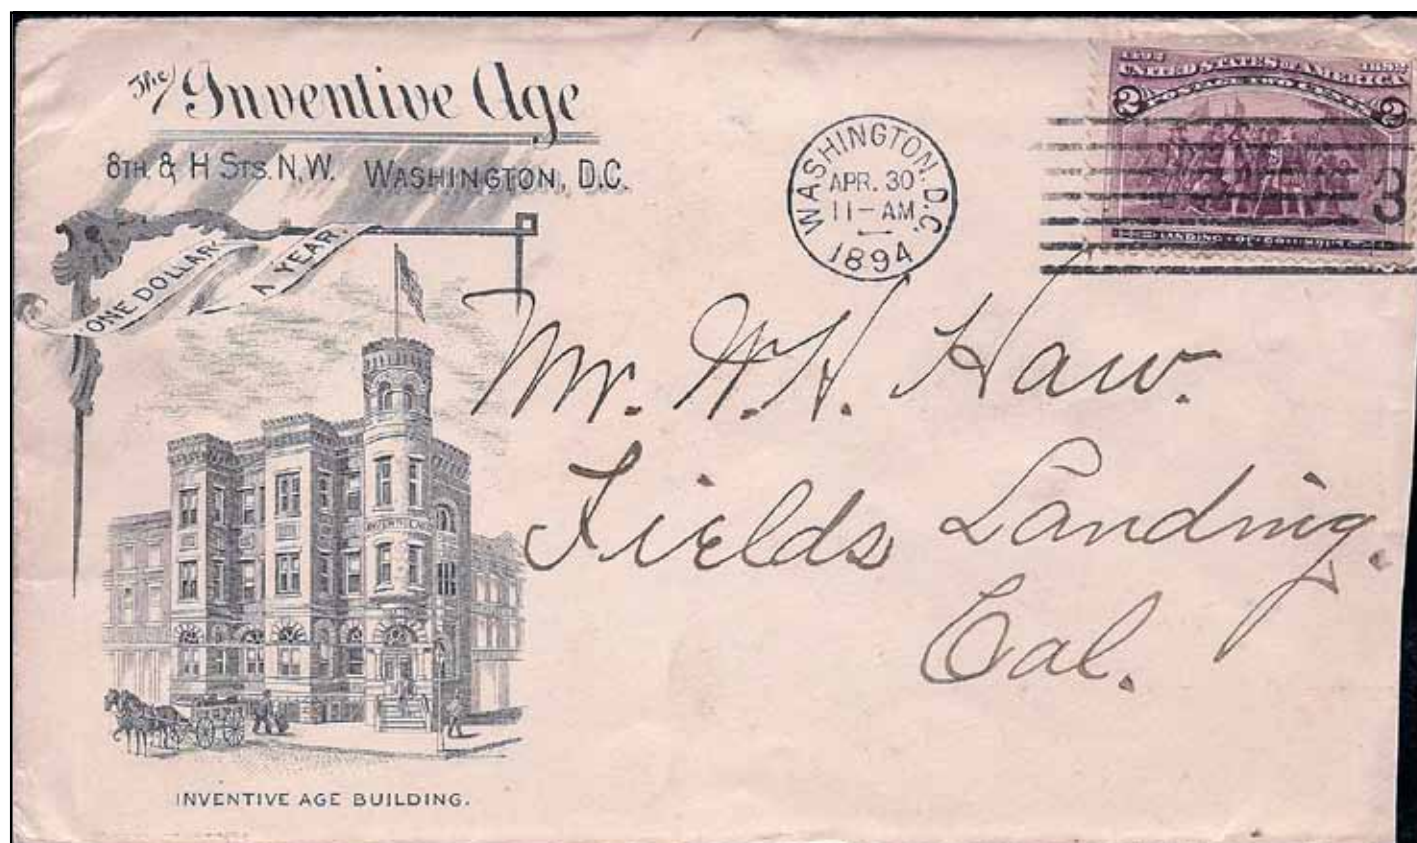 The Inventive Age
8TH. & H STS. N.W. WASHINGTON, D.C.
ONE DOLLAR
A YEAR.
INVENTIVE AGE BUILDING.
WASHINGTON. D.C.
APR. 30
11-AM
1894
1492 1892
UNITED STATES OF AMERICA
2 POSTAGE TWO CENTS 2
LANDING OF COLUMBUS
3
Mr. W. H. Haw.
Fields Landing.
Cal.